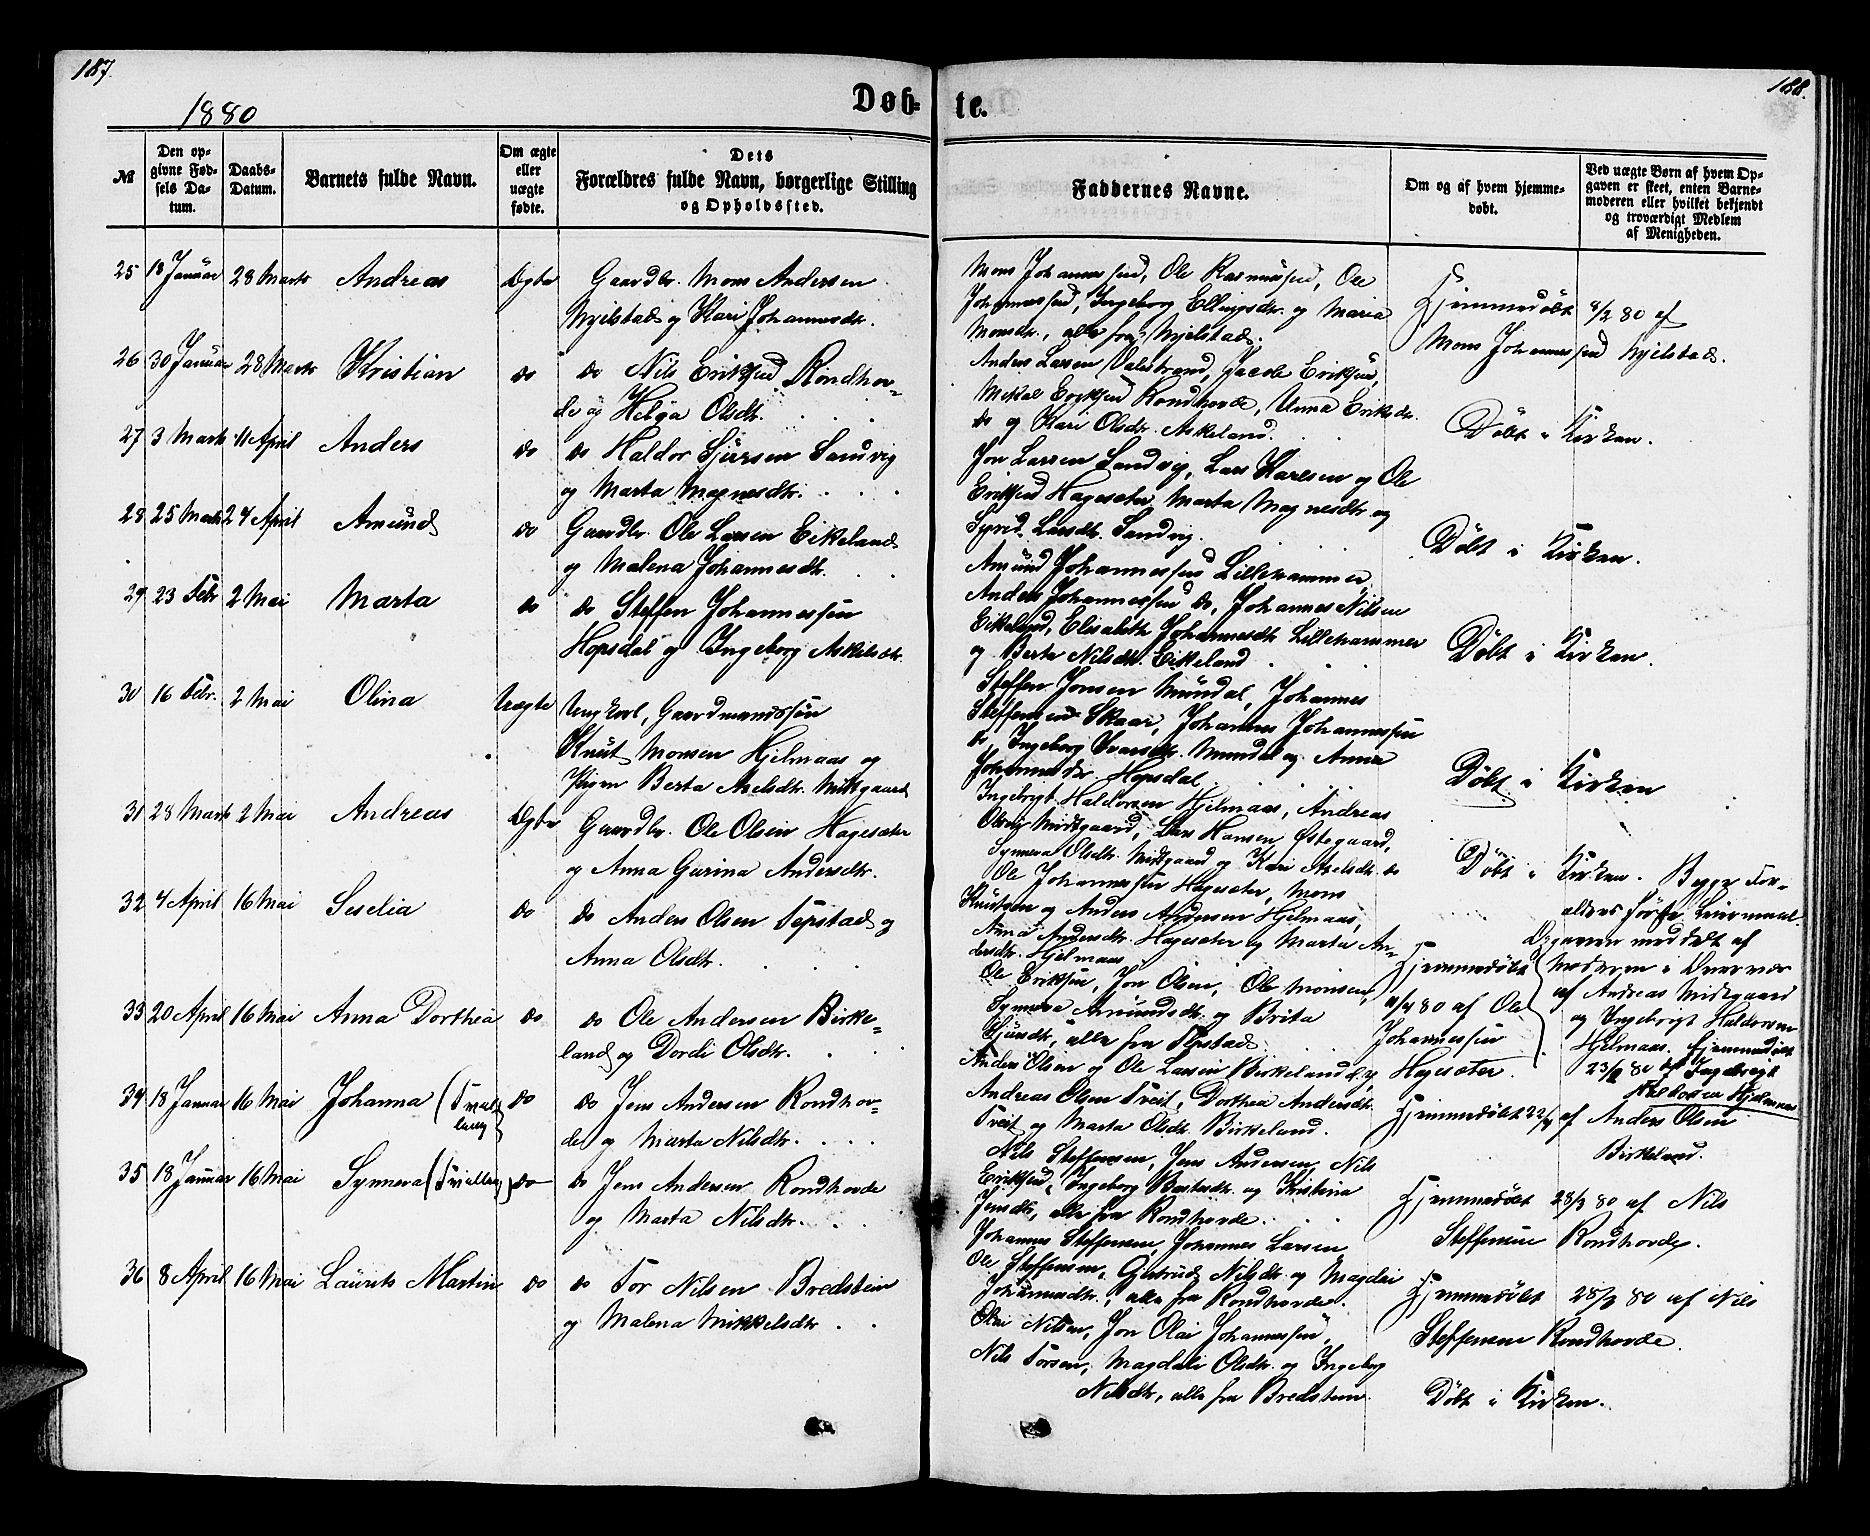 187.
1880
Døb-
№
Den op-
givne Fød-
sels Da-
tum.
Daabs-
Datum.
Barnets fulde Navn.
Om ægte
eller
uægte
fødte.
Dets
Forældres fulde Navn, borgerlige Stilling
og Opholdssted.
25 18 Januar 28 Marts Andreas Ægte Gaardbr. Mons Andersen
Mjelstad og Kari Johannesdtr.
26 30 Januar 28 Marts Kristian do do Nils Eriksen Rondhov-
de og Helga Olsdtr.
27 3 Marts 11 April Anders do do Haldor Sjursen Sandvig
og Marta Magnesdtr.
28 25 Marts 24 April Amund do Gaardbr. Ole Larsen Eikeland
og Malena Johannesdtr.
29 23 Febr 2 Mai Marta do do Steffen Johannessen
Hopsdal og Ingeborg Askelsdtr.
30 16 Febr. 2 Mai Olina Uægte Ungkarl, Gaardmandssøn
Knut Monsen Hjelmaas og
Pigen Berta Axelsdtr. Midtgaard
31 28 Marts 2 Mai Andreas Ægte Gaardbr. Ole Olsen Hagesæter
og Anna Gurina Andersdtr.
32 4 April 16 Mai Seselia do do Anders Olsen Tepstad og
Anna Olsdtr.
33 20 April 16 Mai Anna Dorthea do do Ole Andersen Birke-
land og Dordi Olsdtr.
34 18 Januar 16 Mai Johanna (Tvil-
ling) do do Jens Andersen Rondhov-
de og Marta Nilsdtr.
35 18 Januar 16 Mai Synneva (Tvilling) do do Jens Andersen Rondhovde
og Marta Nilsdtr.
36 8 April 16 Mai Laurits Martin do do Tor Nilsen Bredstein
og Malena Mikkelsdtr.
188.
te.
Faddernes Navne.
Om og af hvem hjemme-
døbt.
Ved uægte Børn af hvem Op-
gaven er skeet, enten Barne-
moderen eller hvilket bekjendt
og troværdigt Medlem
af Menigheden.
Mons Johannessen, Ole Rasmussen, Ole
Johannessen, Ingeborg Ellingsdtr. og Maria
Monsdtr., alle fra Mjelstad.
Anders Larsen Valestrand, Jacob Eriksen,
Mikal Eriksen Rondhovde, Unna Eriksdr
do og Kari Olsdr. Askeland.
Jon Larsen Sandvig, Lars Karlsen og Ole
Eriksen Hagesæter, Marta Magnesdtr og
Larsdtr. Sandvig.
Amund Johannessen Lillehammer,
Anders Johannessen do, Johannes Nilsen
Eikeland, Elisabeth Johannesdtr Lillehammer
og Berta Nilsdtr. Eikeland
Steffen Jonsen Mundal, Johannes
Steffensen Skaar, Johannes Johannessen
do, Ingeborg Ivarsdtr. Mundal og Anna
Johannesdtr. Hopsdal.
Ingebrigt Haldorsen Hjelmaas, Andreas
Olsen Midtgaard, Lars Hansen Østegaard,
Synneva Olsdtr. Midtgaard og Kari Axelsdtr. do
Ole Johannessen Hagesæter, Mons
Knutsen og Anders Andersen Hjelmaas,
Anna Andersdtr. Hagesæter og Marta An-
dersdtr. Hjelmaas
Ole Eriksen, Jon Olsen, Ole Monsen,
Synneva Amundsdtr. og Brita
alle fra Tepstad
Anders Olsen og Ole Larsen Birkeland,
Andreas Olsen Tveit, Dorthea Andersdtr.
Tveit og Marta Olsdtr Birkeland.
Nils Steffensen, Jens Andersen, Nils
Eriksen, Ingeborg og Kristina
Jensdtr, alle fra Rondhovde.
Johannes Steffensen, Johannes Larsen,
Ole Steffensen, Gjertrud Nilsdtr og Magdeli
Johannesdtr., alle fra Rondhovde.
Olai Nilsen, Jon Olai Johannessen,
Nils Torsen, Magdali Olsdtr. og Ingeborg
Nilsdtr, alle fra Bredstein.
Hjemmedøbt 8/2 80 af
Mons Johannessen Mjelstad.
Døbt i Kirken.
Døbt i Kirken.
Døbt i Kirken.
Døbt i Kirken
Døbt i Kirken. Begge For-
ældres første Leiermaal.
Opgaven meddelt af
Moderen i Overvær
af Andreas Midtgaard
og Ingebrigt Haldorsen
Hjelmaas. Hjemmedøbt
23/2 80 af Ingebrigt
Haldorsen Hjelmaas
Hjemmedøbt
11/4 80 af Ole
Johannessen
Hagesæter.
Hjemmedøbt 22/4 af Anders Olsen
Birkeland.
Hjemmedøbt 28/2 80 af Nils
Steffensen Rondhovde.
Hjemmedøbt 28/2 80 af Nils
Steffensen Rondhovde.
Døbt i Kirken.